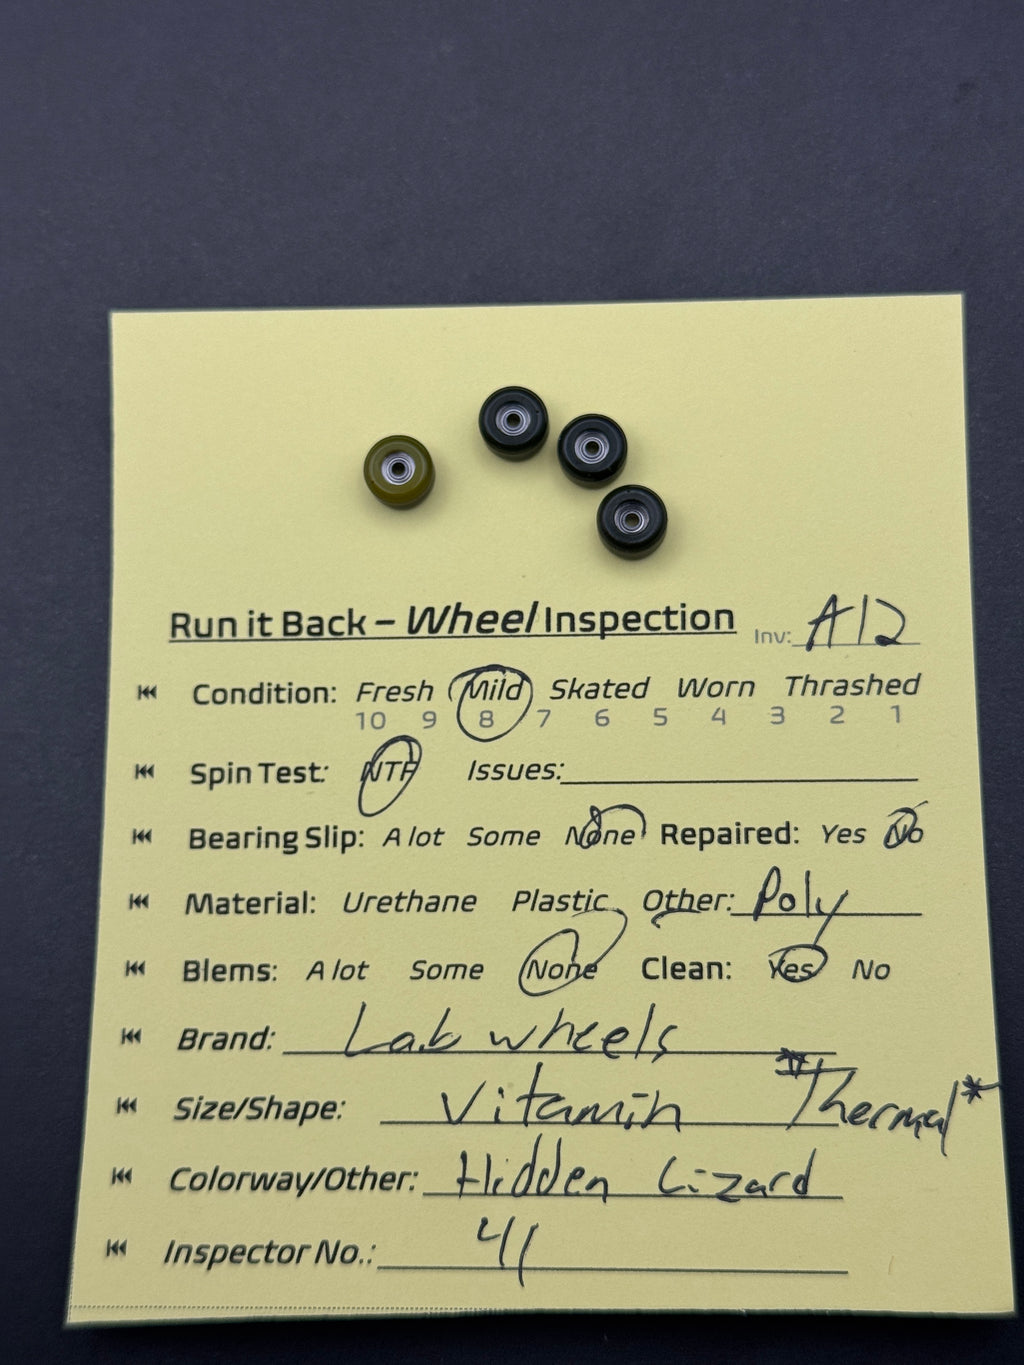 Run it Back – Wheel Inspection Inv: A12
Condition: Fresh Mild Skated Worn Thrashed
10 9 8 7 6 5 4 3 2 1
Spin Test: NTF Issues:
Bearing Slip: A lot Some None Repaired: Yes No
Material: Urethane Plastic Other: Poly
Blems: A lot Some None Clean: Yes No
Brand: Lab wheels
Size/Shape: Vitamin *Thermal*
Colorway/Other: Hidden Lizard
Inspector No.: 41